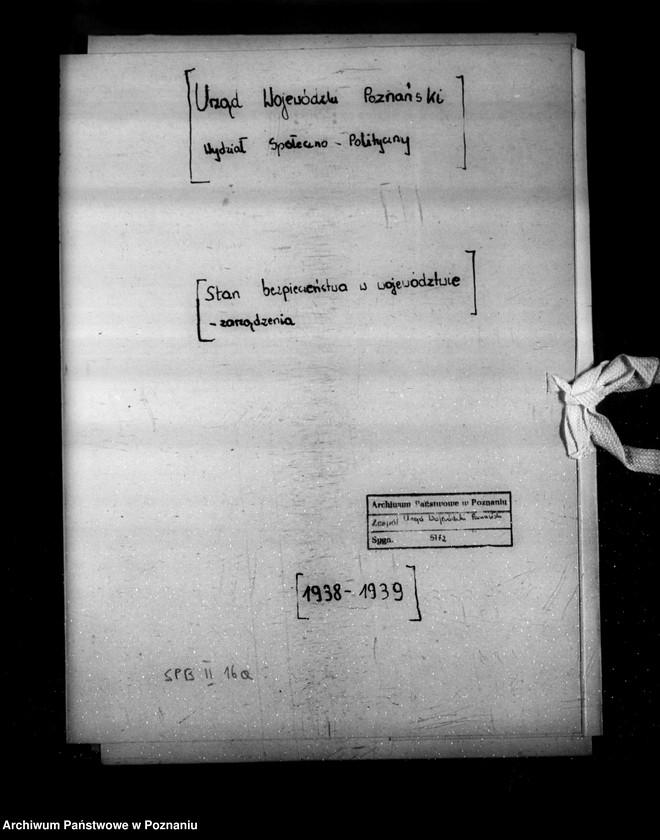 [Urząd Wojewódzki Poznański
Wydział Społeczno-Polityczny]
[Stan bezpieczeństwa w województwie
- zarządzenia
Archiwum Państwowe w Poznaniu
Zespół Urząd Wojewódzki Poznański
Sygn.
[1938-1939]
SPB II 16a
Archiwum Państwowe w Poznaniu